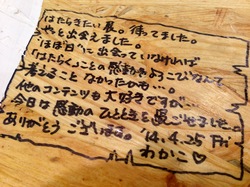 はたらきたい展。待ってました。
やっと出会えました。
"ほぼ日"に出会っていなければ
「はたらく」ことの感動やよろこびなんて
考えること なかったかも…。
他のコンテンツも大好きですが…
今日は感動のひとときを過ごせました。
ありがとう ございます。
'14.4.25 Fri
わかこ♡